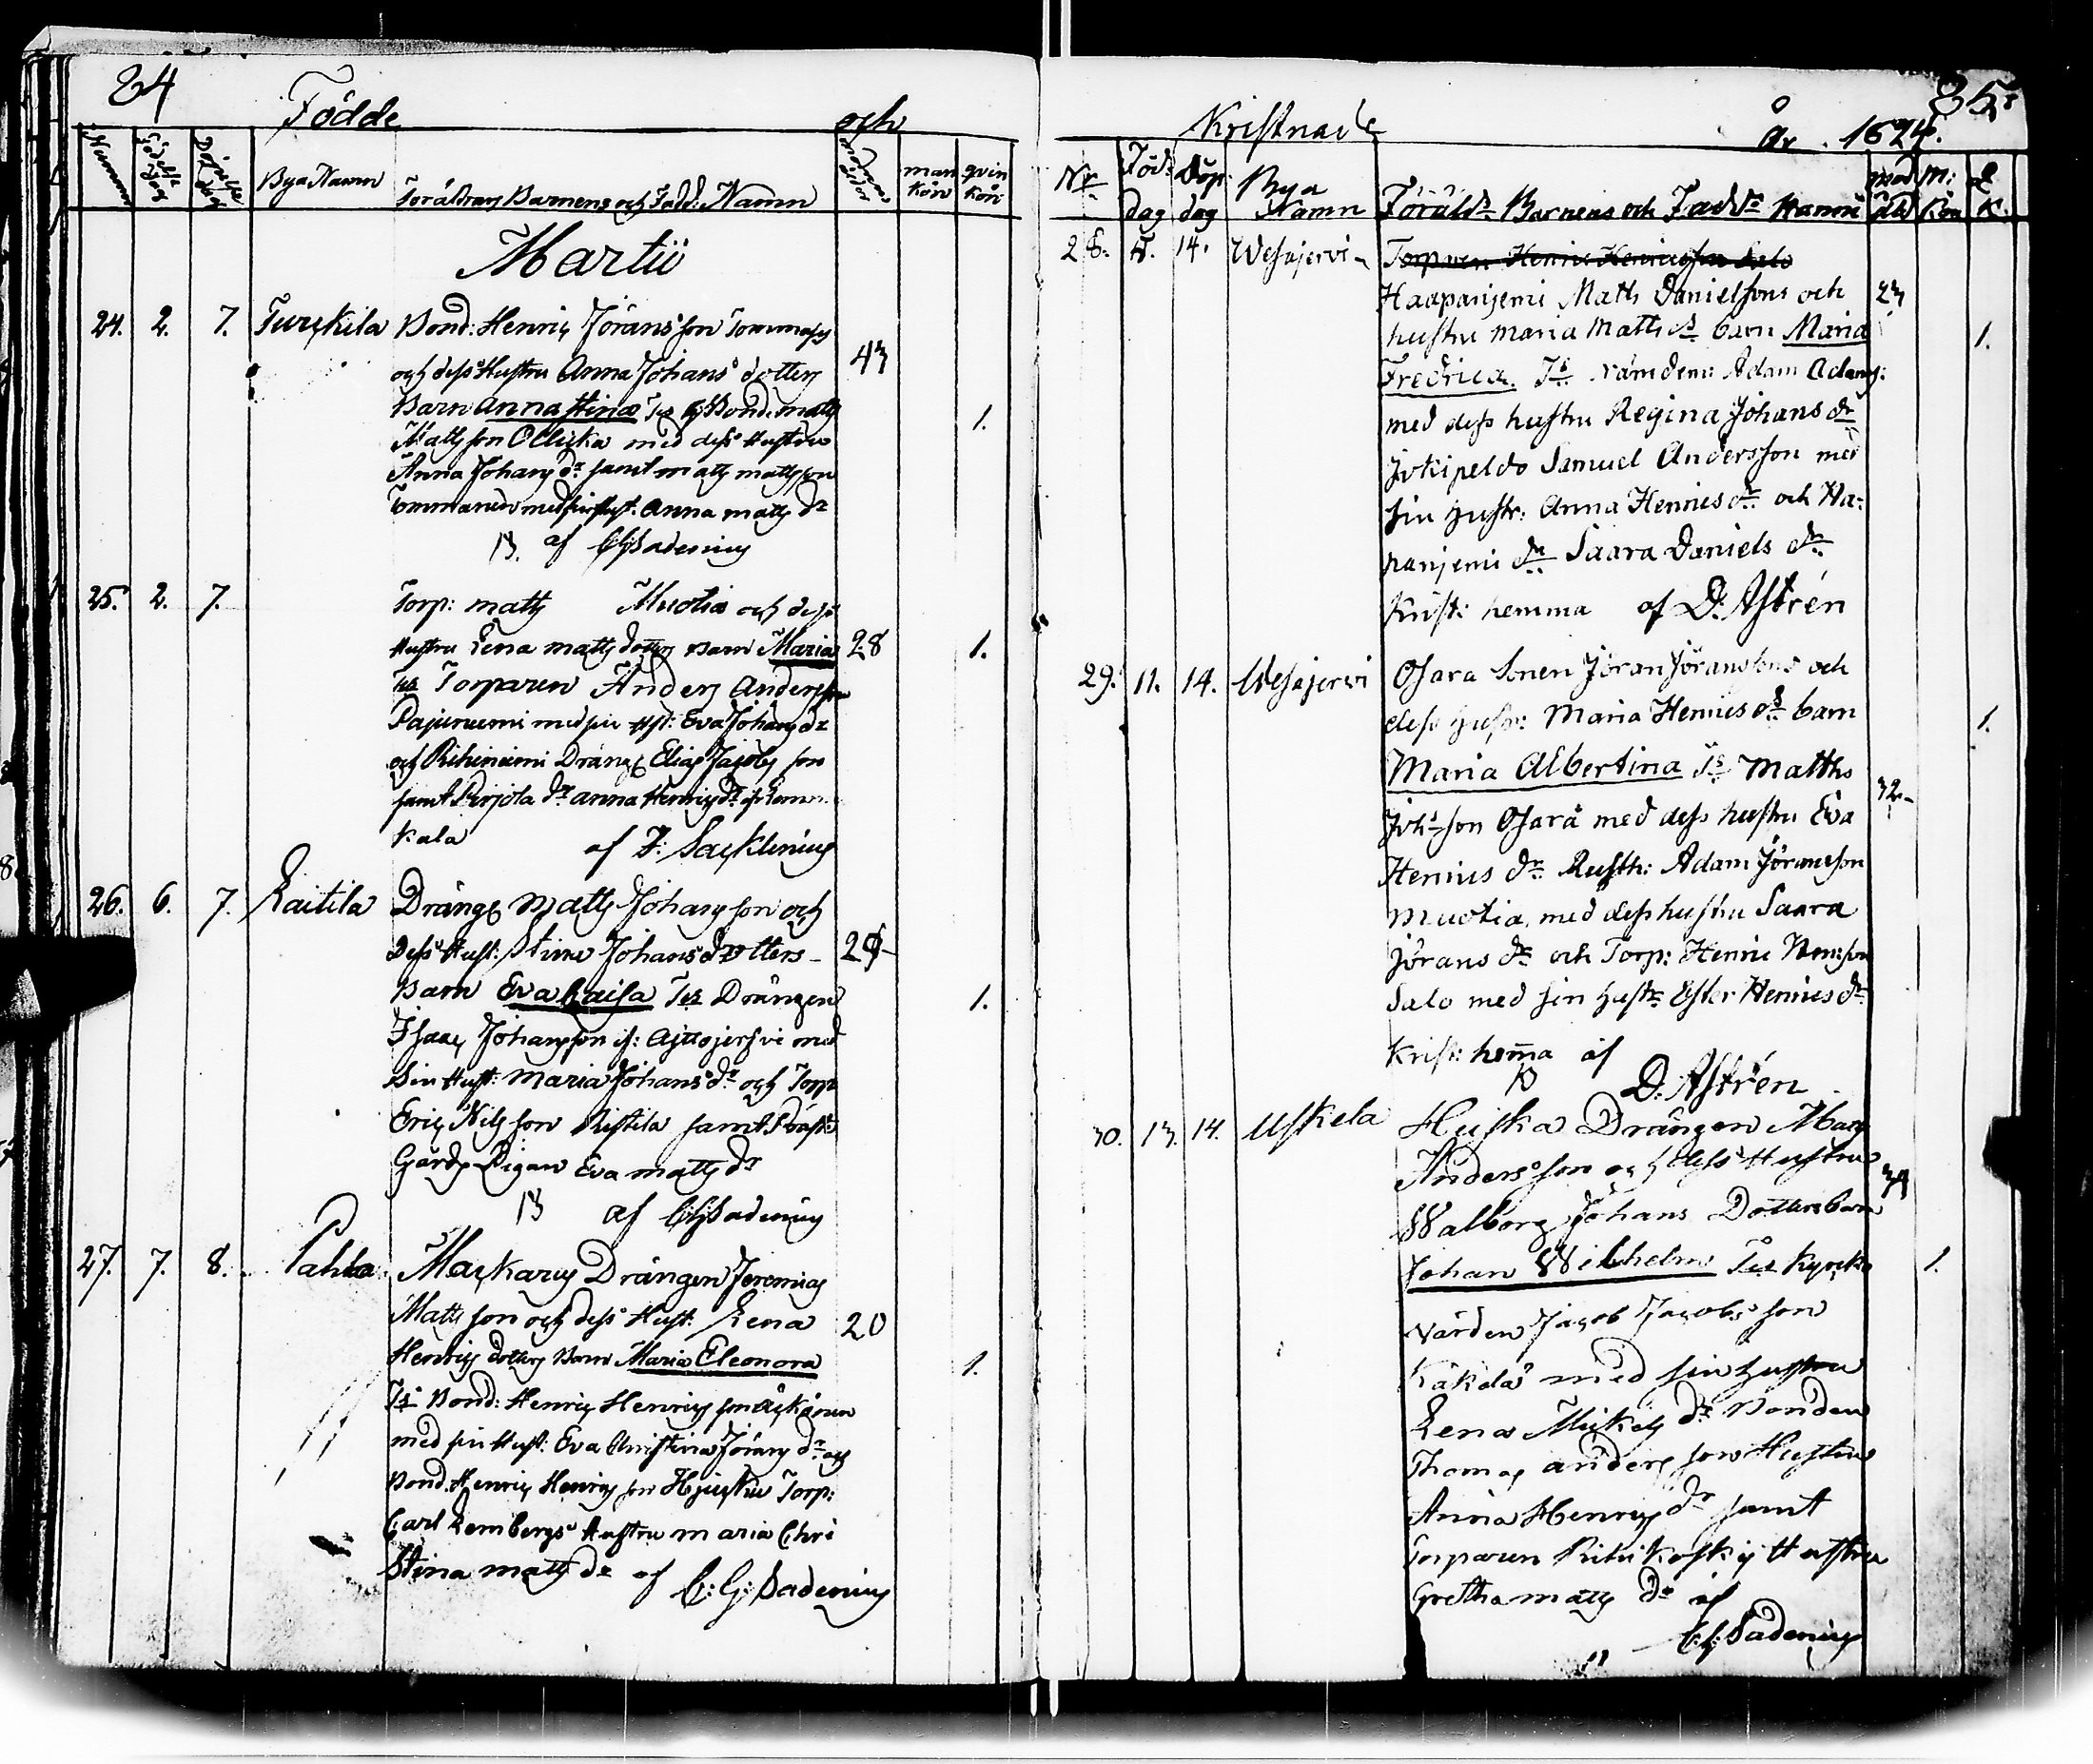 84
Födde och
Nummer Födelse dag Döpelse dag Bya Namn Föräldrars Barnens och Fadd: Namn man kön qvin kön
Martii
24. 2. 7. Turckila Bond: Henric Jöransson Tommass
och dess Hustru Anna Johans dotters 43
Barn Anna Stina Ts Bond: Matts 1.
Mattsson Ollicka med dess Hustru
Anna Johans dr samt Matts Mattsson
Anna Matts dr
af CG Sadenius
25. 2. 7. Torp: Matts Muotia och dess
Hustru Lena Matts dotters Barn Maria 28 1.
Ts Torparen Anders Andersson
Pajuniemi med sin Hst: Eva Johans dr
och Rihiniemi Dräng Elias Jacobs son
samt Perjola dr Anna Henrics dr
kala af F: Sacklinius
26. 6. 7. Laitila Dräng Matts Johansson och
Dess Hust: Stina Johans dotters
Barn Eva Caisa Ts Drängen 1.
Isaac Johansson med
sin Hust: Maria Johans dr och Torp:
Eric Nilsson Ristila samt Präst
Gårds Pigan Eva Matts dr
af CG Sadenius
27. 7. 8. Pahla Mackarus Drängen Jeremias
Matts son och dess Hust: Lena 20
Henrics dotters Barn Maria Eleonora 1.
Ts Bond: Henric Henrics son
med sin Hust: Eva Christina Jörans dr och
Bond. Henric Henrics son Torp:
Carl Lembergs Hustru Maria Chri
stina Matts dr af C: G: Sadenius
85.
Kristnade År 1824.
Nr Föd: dag Döp: dag Bya Namn Föräld:r Barnens och Fadd:r Namn mod: åld m: kön q k.
28. 5. 14. Wesajervi Torparen Henric Henricsson Salo
Haapanjemi Matts Danielsons och 23
hustru Maria Matts ds barn Maria 1.
Fredrica. Ts Nämdem: Adam Adams:
med dess hustru Regina Johans dr
Jokipeldo Samuel Andersson med
sin Hustr: Anna Henrics dr och Ha-
panjemi dr Saara Daniels dr
Krist: hemma af D: Astrén
29. 11. 14. Wesajerwi Osara Sonen Jöran Jöransons och
dess hustr: Maria Henrics ds barn 1.
Maria Albertina Ts Matths
Joh:son Osara med dess hustru Eva 32
Henrics dr Rusth: Adam Jöransson
Muotia, med dess hustru Saara
Jörans dr och Torp: Henric Hen:son
Salo med sin hustr Ester Henrics dr
Krist: hemma af
D. Astrén
30. 13. 14. Uskela Huska Drängen Mats
Anders son och dess Hustru
Walborg Johans Dotters barn
Johan Wilhelm Ts Kyrck 1.
värden Jacob Jacobs son
Käkelä med sin hustru
Lena Mickels dr Bonden
Thomas Anders sons Hustru
Anna Henrics dr samt
Torparen Hustru
Gretha Matts dr af
C: G: Sadenius